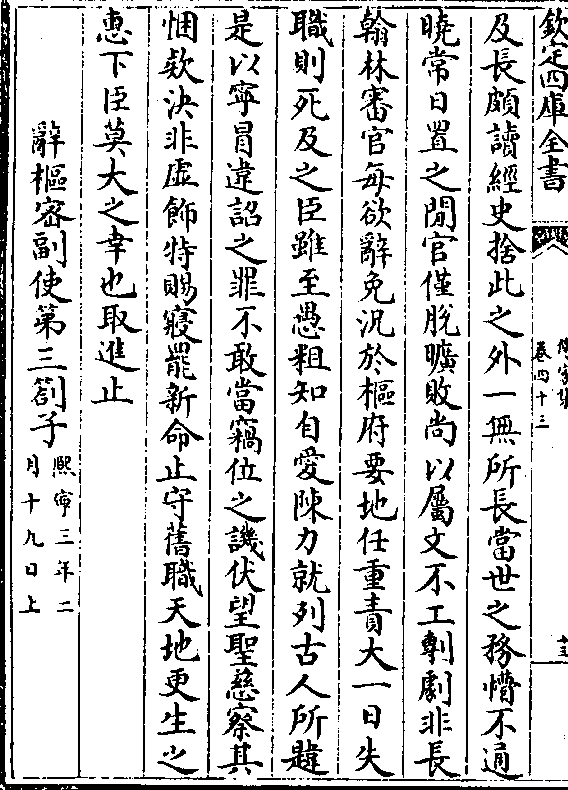 欽定四庫全書
卷四十三
及長頗讀經史捨此之外一無所長當世之務懵不通
曉常日置之閒官僅脫曠敗尚以屬文不工剸劇非長
翰林審官每欲辭免況於樞府要地任重責大一日失
職則死及之臣雖至愚粗知自愛陳力就列古人所韙
是以寧冒違詔之罪不敢當竊位之譏伏望聖慈察其
悃欵決非虛飾特賜寢罷新命止守舊職天地更生之
惠下臣莫大之幸也取進止
辭樞密副使第三劄子熙寧三年二月十九日上